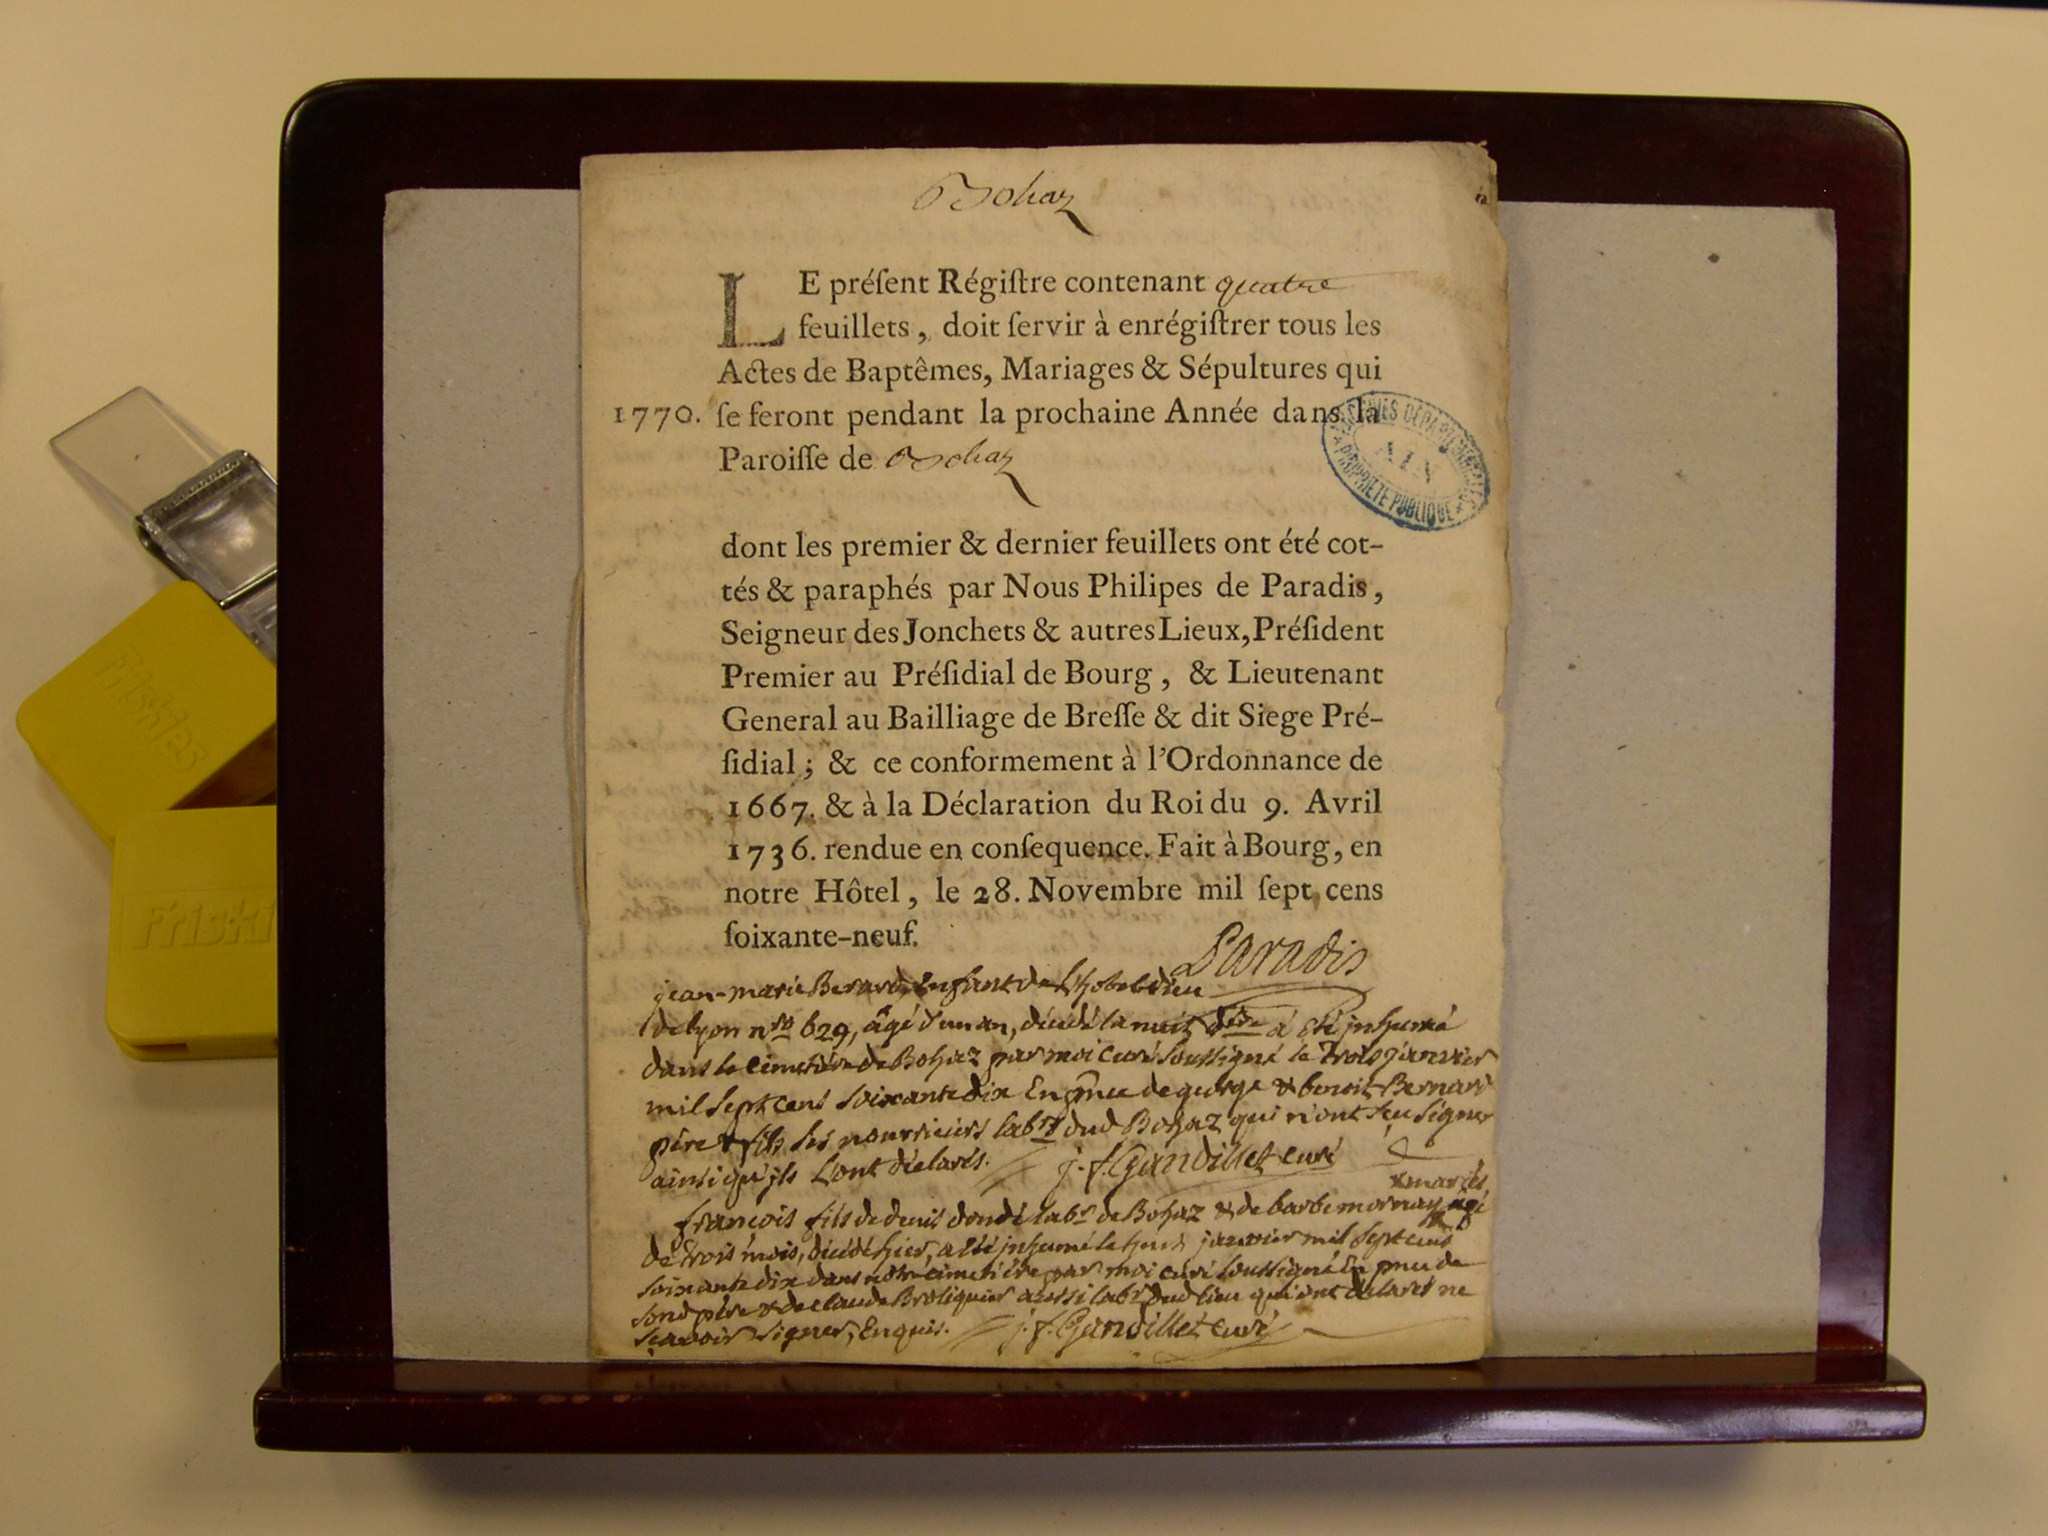 Bohaz
LE préſent Régiſtre contenant quatre
feuillets, doit ſervir à enrégiſtrer tous les
Actes de Baptêmes, Mariages & Sépultures qui
1770. ſe feront pendant la prochaine Année dans la
Paroiſſe de Bohaz
ARCHIVES DÉPARTEMENTALES
AIN
PROPRIÉTÉ PUBLIQUE
dont les premier & dernier feuillets ont été cot-
tés & paraphés par Nous Philipes de Paradis,
Seigneur des Jonchets & autres Lieux, Préſident
Premier au Préſidial de Bourg, & Lieutenant
General au Bailliage de Breſſe & dit Siege Pré-
ſidial; & ce conformement à l'Ordonnance de
1667. & à la Déclaration du Roi du 9. Avril
1736. rendue en conſequence. Fait à Bourg, en
notre Hôtel, le 28. Novembre mil ſept cens
ſoixante-neuf.
Paradis
jean-marie Berard, Enfant de L'hotel dieu
de lyon nro 629, âgé d'un an, décédé la nuit dere a été jnhumé
dans le cimetière de Bohaz par moi curé soussigné le trois janvier
mil sept cens soixante dix En pnce de george & benoit Bernard
père & fils ses nourriciers labrs dud Bohaz qui n'ont sçu signer
ainsi qu'jls L'ont déclarés. j. f. Gandillet curé
& mariés,
françois fils de denis dondé labr de Bohaz & de barbe mornay, âgé
de trois mois, décédé hier, a été jnhumé le janvier mil sept cens
soixante dix dans notre cimetière par moi curé soussigné En pnce de
sond père & de claude Broliquier aussi labr dud lieu qui ont déclarés ne
sçavoir signer, Enquis. j. f. Gandillet curé
Friskies
Friski